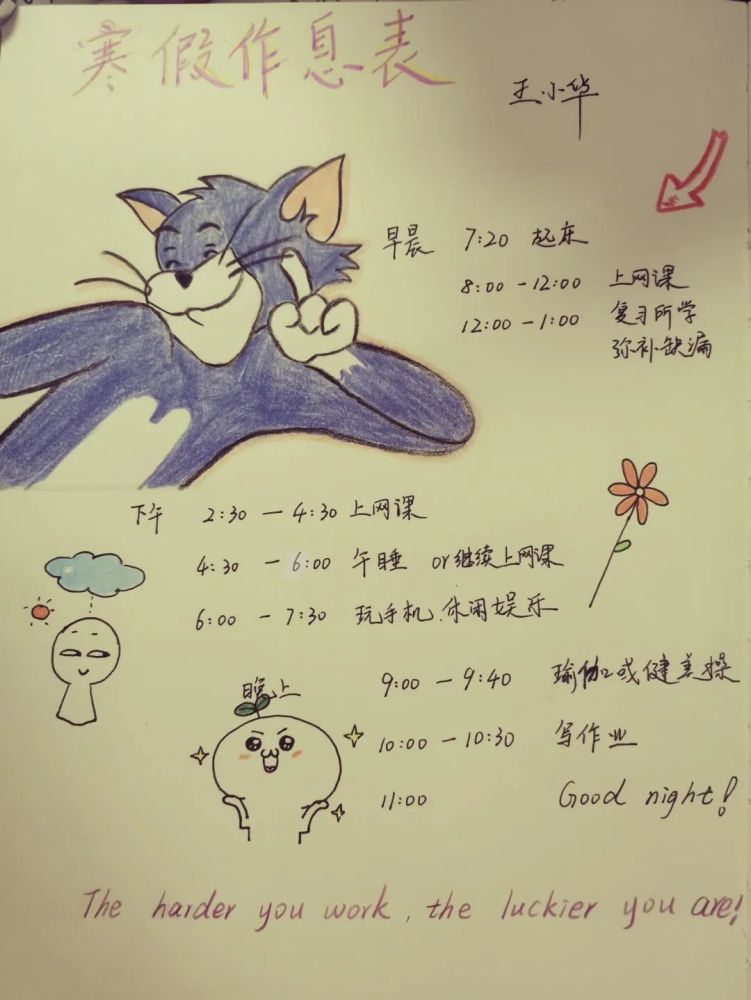 寒假作息表
王小华
早晨 7:20 起床
8:00 - 12:00 上网课
12:00 - 1:00 复习所学
弥补缺漏
下午 2:30 - 4:30 上网课
4:30 - 6:00 午睡 or继续上网课
6:00 - 7:30 玩手机.休闲娱乐
晚上
9:00 - 9:40 瑜伽或健美操
10:00 - 10:30 写作业
11:00 Good night!
The harder you work, the luckier you are!